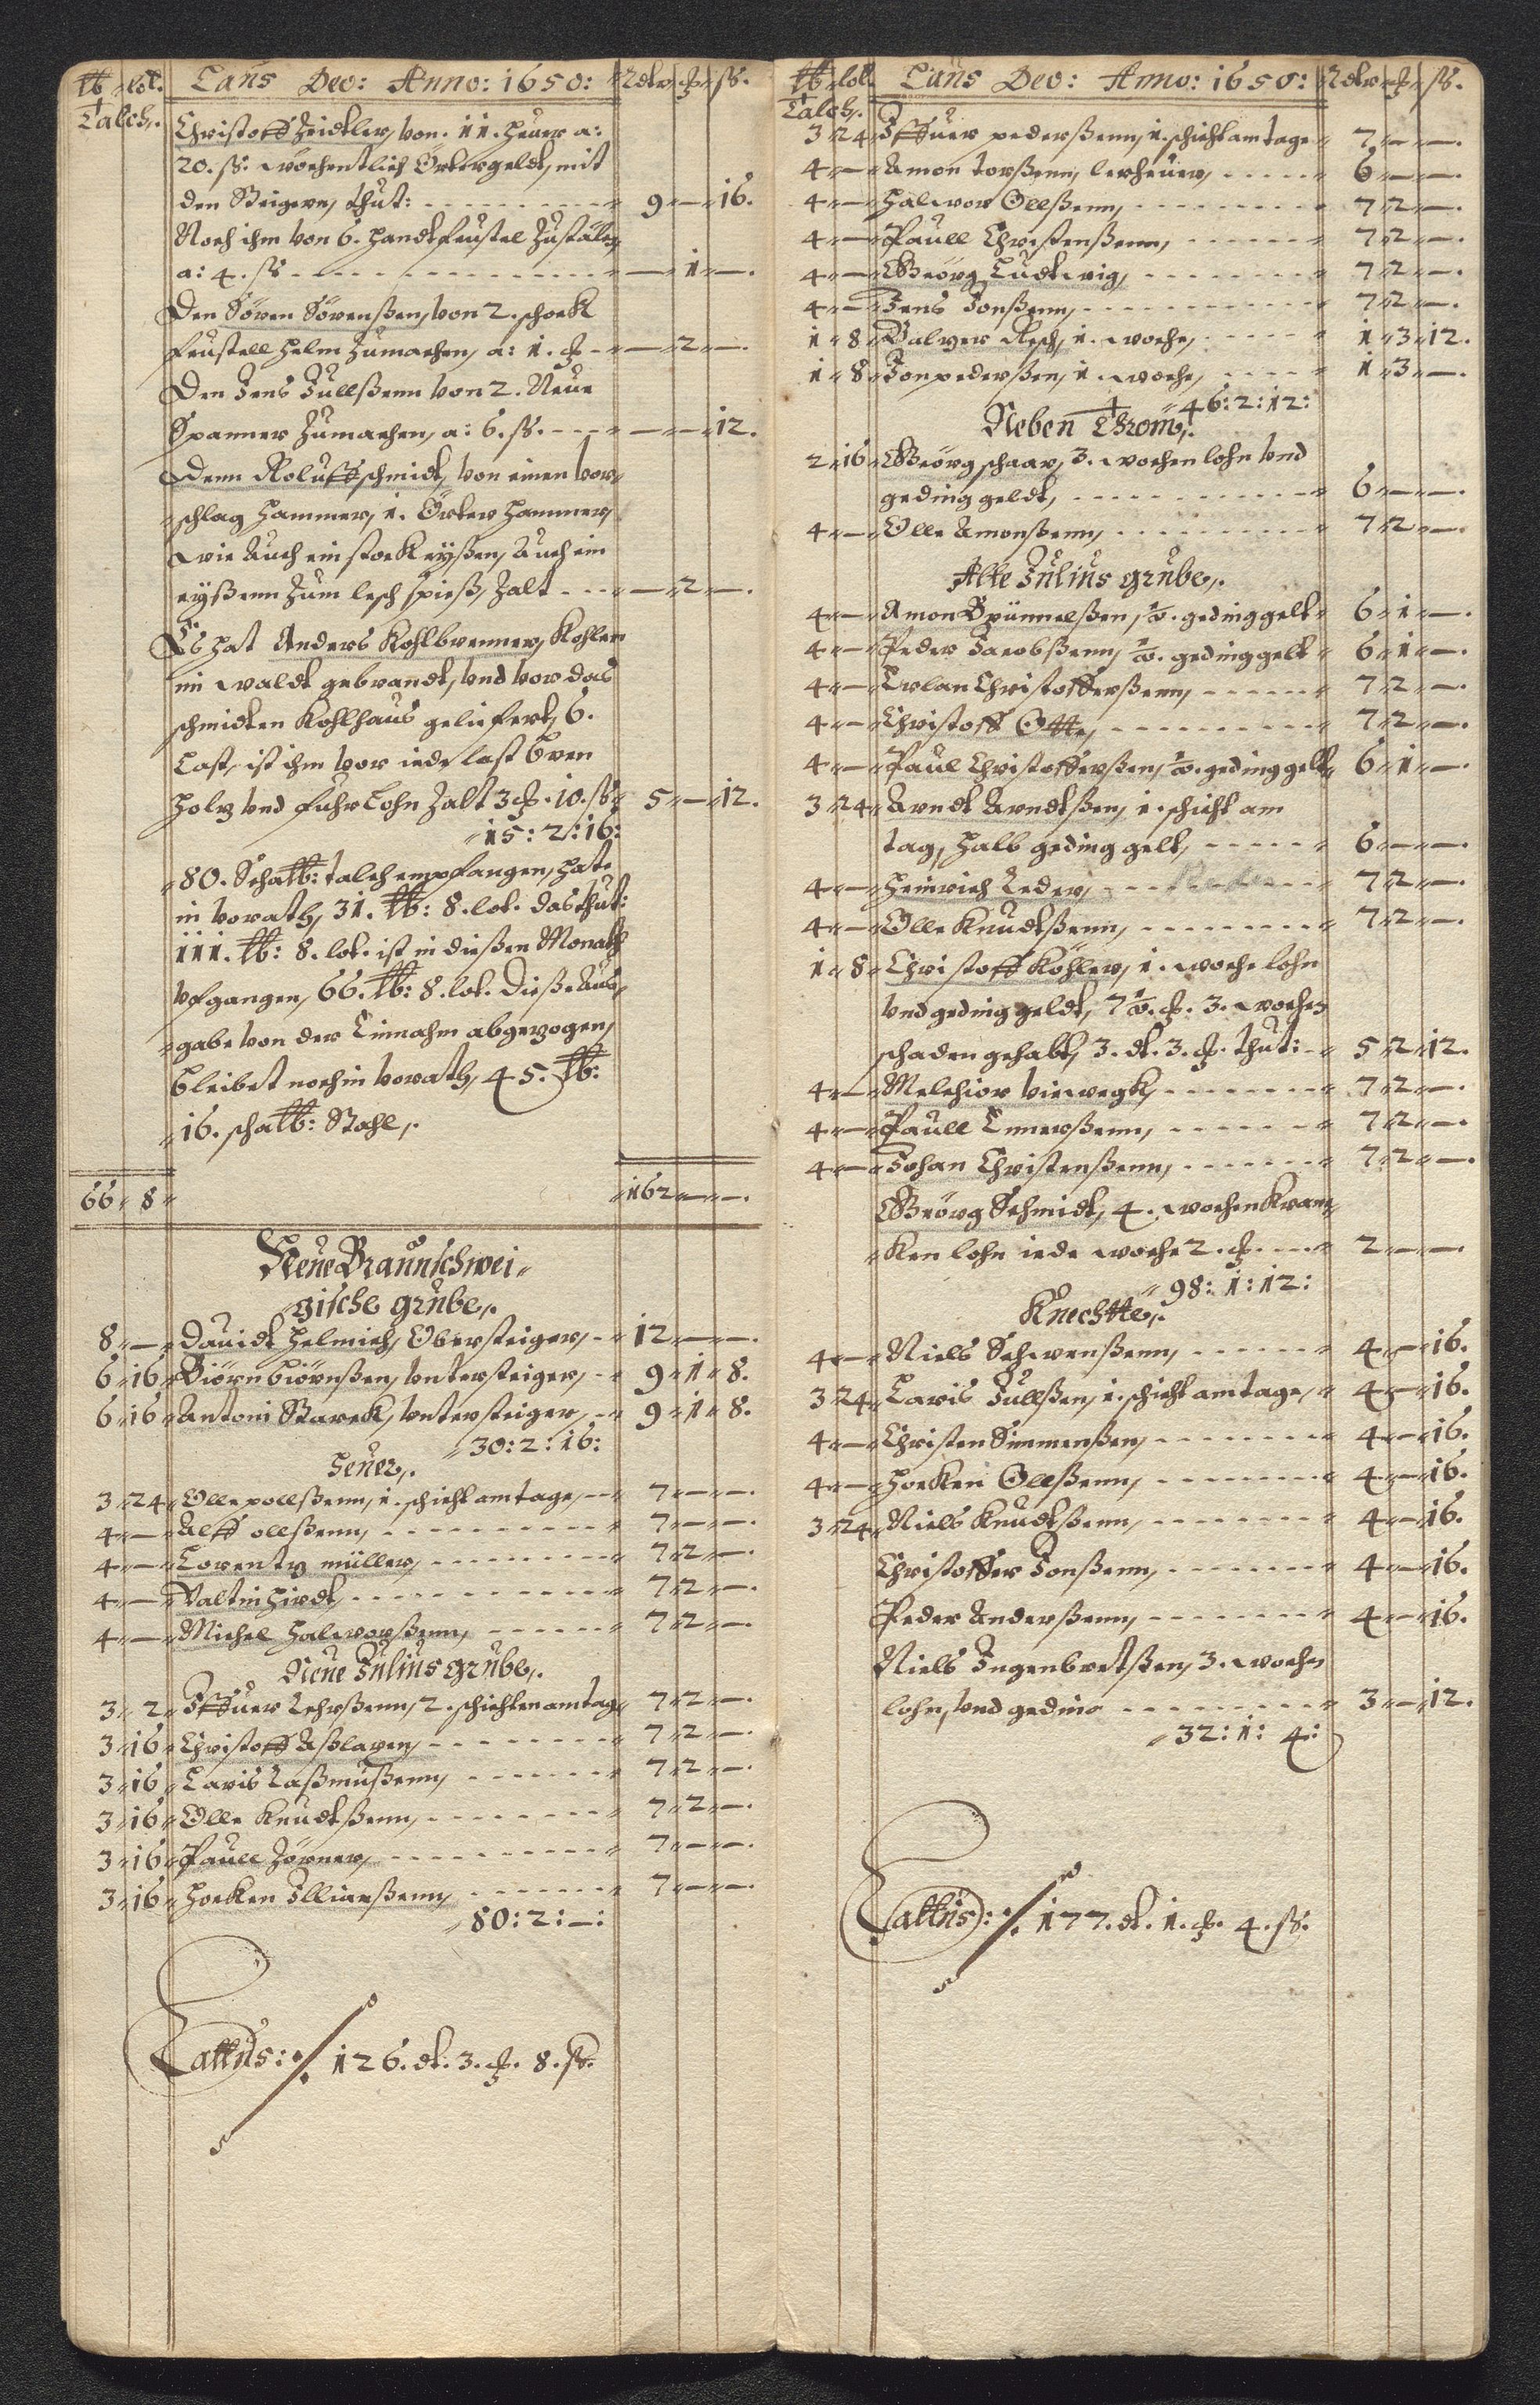 ℔ lot. Laus Deo: Anno: 1650: Rdlr ȶ ß.
Talch,.
Christoff Zeidtler, von. 11. Heuer a:
20. ß. wöchentlich Örtergeldt, mit
den Steigern, thut: 9 — 16.
Noch ihm von 6. Handtfeustel Zustälen
a: 4. ß — 1 —.
Den Sören Sörenßen, von 2. schock
feustell Helm Zumachen, a: 1. — 2 —.
Den Jens Jullßenn von 2. Neue
Spanner Zumachen, a: 6. ß. — — 12.
Denn Roluff schmidt, von einen vor,,
,,schlag Hammer, 1. Örter Hammer,
wie Auch ein stock eyßen, Auch ein
eyßenn Zum lesch spieß, Zalt — 2 —.
Es hat Anders Kohlbrenner, Kohlen
im waldt gebrandt, vnd vor das
schmidten Kohlhaus geliefert, 6.
Last, ist ihm vor iede last bren
Holtz vnd fuhr Lohn Zalt 3 . 10. ß 5 — 12.
15: 2: 16:
80. Scha℔: talch empfangen, hate
in vorath, 31. ℔: 8. lot. das thut:
111. ℔: 8. lot. ist in dießen Monath
vfgangen, 66. ℔: 8. lot. Dieße Aus,,
,,gabe von der Einnahm abgezogen,
bleibet noch in vorath, 45. ℔:
16. scha℔: Stahl,.
66 8 162 — —.
Neue Braunschwei,,
,,gische grube,.
8 — Dauidt Helmich, Obersteiger, 12 — —.
6 16 Biörn biörnßen, vntersteiger, 9 1 8.
6 16 Antoni Starck, vntersteiger, 9 1 8.
30: 2: 16:
Heuer,.
3 24 Olle pollßenn, 1. schicht am tage, 7 — —.
4 — Alff ollßenn, 7 — —.
4 — Lorentz müller, 7 2 —.
4 — Valtin Hirdt, 7 2 —.
4 — Michel Halworßenn, 7 2 —.
Neue Julius grube,.
3 2 Iffuer Lehrßenn, 2. schichten am tag 7 2 —.
3 16 Christoff Aßlagen, 7 2 —.
3 16 Laris Laßmußenn, 7 2 —.
3 16 Olle Knudtßenn, 7 2 —.
3 16 Paull Zörner, 7 — —.
3 16 Hocken Illianßenn, 7 — —.
80: 2: —:
Lattus: 126. dl. 3. 8. ß.
℔ lot. Laus Deo: Anno: 1650: Rdlr ȶ ß.
Talch,.
3 24 Iffuer pederßenn, 1. schicht am tage 7 — —.
4 — Amon torßenn, lerheuer, 6 — —.
4 — Halwor Ollßenn, 7 2 —.
4 — Paull Christenßenn, 7 2 —.
4 — Geörg Ludtwig, 7 2 —.
4 — Jens Jonßenn, 7 2 —.
1 8 Balzer Resch, 1. woche, 1 3 12.
1 8 Jon pederßen, 1. woche, 1 3 —.
46: 2: 12:
Neben Throm,.
2 16 Geörg schaar, 3. wochen lohn vnd
geding geldt, 6 — —.
4 — Olle Amonßenn, 7 2 —.
Alte Julius grube,.
4 — Amon Günnelßen, ½. geding gelt 6 1 —.
4 — Peder Jacobßenn, ½. geding gelt 6 1 —.
4 — Erlan Christofferßenn, 7 2 —.
4 — Christoff Otte, 7 2 —.
4 — Paul Christofferßen, ½. geding gelt 6 1 —.
3 24 Arndt Arndtßen, 1. schicht am
tag, halb geding gelt, 6 — —.
4 — Heinrich Reder, 7 2 —.
4 — Olle Knudtßenn, 7 2 —.
1 8 Christoff Köhler, 1. woche lohn
vnd geding geldt, 7½. 3. wochen
schaden gehabt, 3. dl. 3. thut: 5 2 12.
4 — Melchior viewegk, 7 2 —.
4 — Paull Ennerßenn, 7 2 —.
4 — Johan Christenßenn, 7 2 —.
Geörg Schmidt, 4. wochen Kran,,
,,ken lohn iede woche 2. 2 — —.
98: 1: 12:
Knechtte,.
4 — Niels Schwenßenn, 4 — 16.
3 24 Laris Jullßen, 1. schicht am tage, 4 — 16.
4 — Christen Simmenßen, 4 — 16.
4 — Hocken Ollßenn, 4 — 16.
3 24 Niels Knudtßenn, 4 — 16.
Christoffer Jonßenn, 4 — 16.
Peder Anderßenn, 4 — 16.
Niels Ingenbretßen, 3. wochen
lohn, vnd geding 3 — 12.
32: 1: 4:
Lattus: 177. dl. 1. 4. ß.